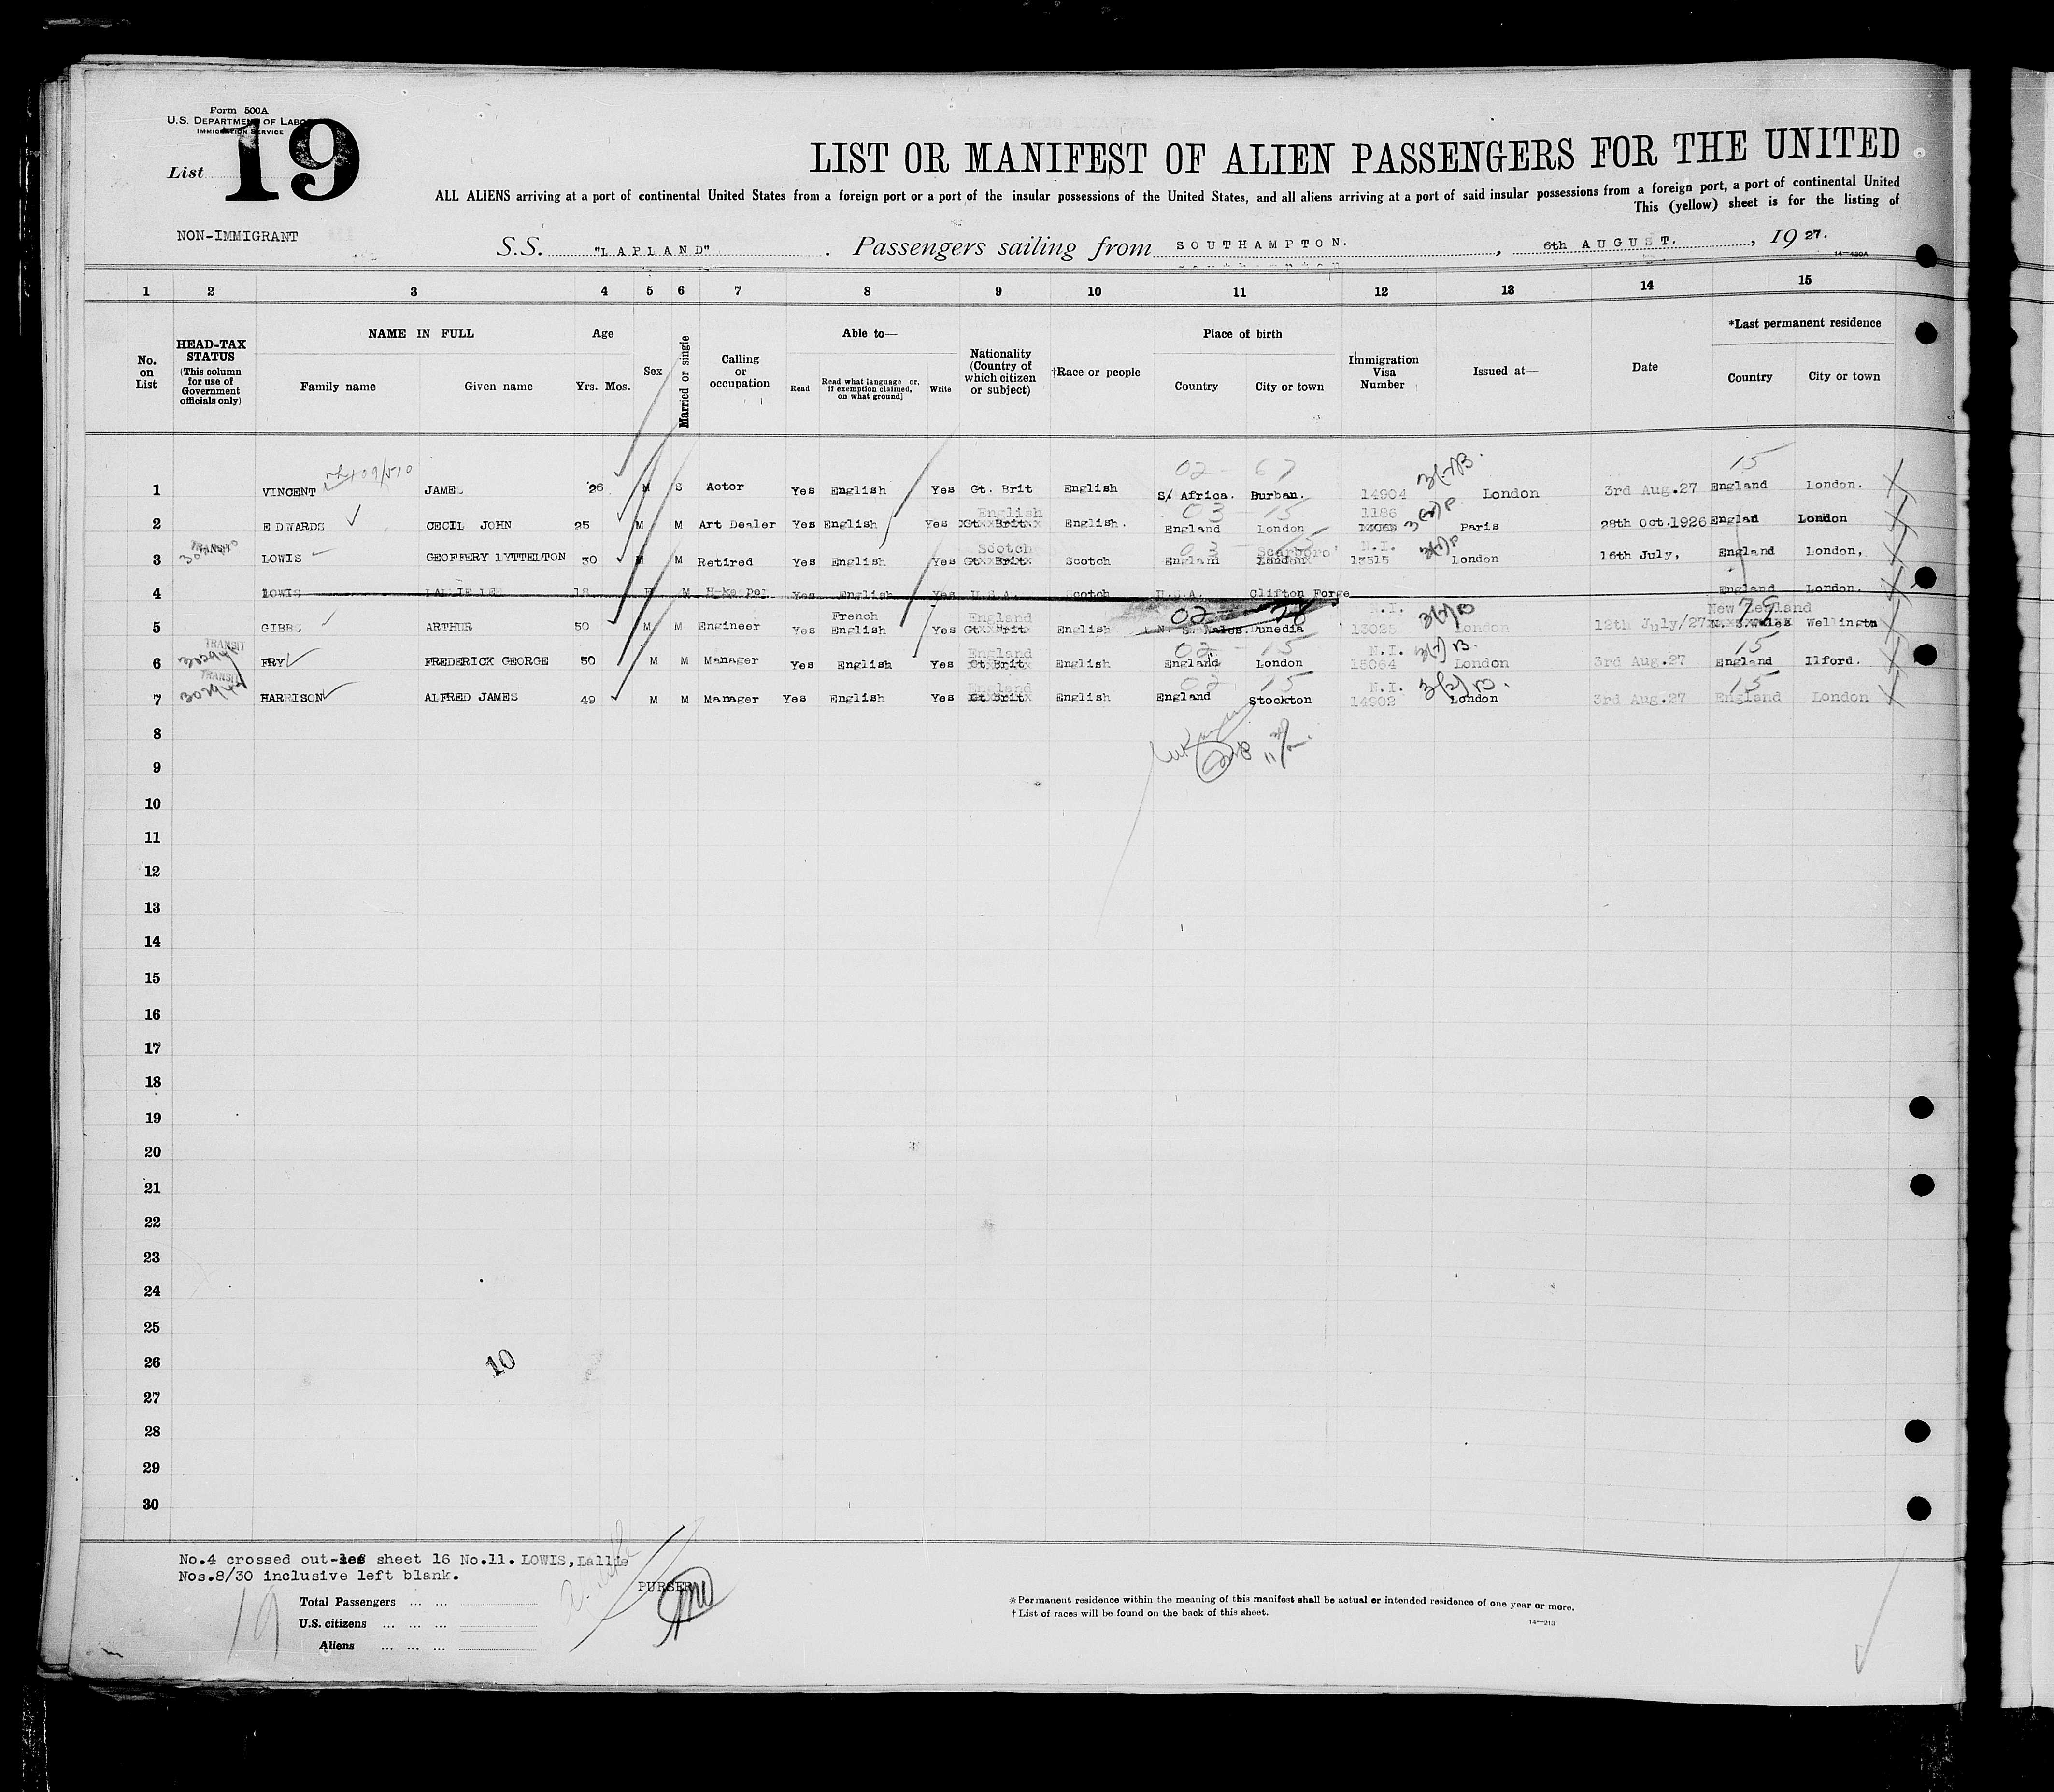 Form 500A
U.S. DEPARTMENT OF LABOR
IMMIGRATION SERVICE
List 19
LIST OR MANIFEST OF ALIEN PASSENGERS FOR THE UNITED
ALL ALIENS arriving at a port of continental United States from a foreign port or a port of the insular possessions of the United States, and all aliens arriving at a port of said insular possessions from a foreign port, a port of continental United
This (yellow) sheet is for the listing of
NON-IMMIGRANT
S.S. "LAPLAND". Passengers sailing from SOUTHAMPTON., 6th AUGUST., 1927.
14—430A
1 2 3 4 5 6 7 8 9 10 11 12 13 14 15
No. on List
HEAD-TAX STATUS (This column for use of Government officials only)
NAME IN FULL
Family name Given name
Age
Yrs. Mos.
Sex
Married or single
Calling or occupation
Able to—
Read Read what language or, if exemption claimed, on what ground] Write
Nationality (Country of which citizen or subject)
†Race or people
Place of birth
Country City or town
Immigration Visa Number
Issued at—
Date
*Last permanent residence
Country City or town
02 - 67 15
1 VINCENT JAMES 26 M S Actor Yes English Yes Gt. Brit English S/ Africa. Burban. 14904 London 3rd Aug.27 England London.
English 03 - 15 1186
2 EDWARDS CECIL JOHN 25 M M Art Dealer Yes English Yes Gt. Brit English. England London Paris 28th Oct.1926 Englad London
TRANSIT Scotch Scarboro' N.I.
3 LOWIS GEOFFERY LYTTELTON 30 M M Retired Yes English Yes Gt. Brit Scotch England London 13515 London 16th July, England London,
4 LOWIS 18 M Yes English Yes U.S.A. Scotch U.S.A. Clifton Forge England London.
French England 02 N.I. New Zealand
5 GIBBS ARTHUR 50 M M Engineer Yes English Yes Gt. Brit English N. S. Wales. Dunedia 13025 London 12th July/27 N. S. Wales Wellingtn
TRANSIT England 02 - 15 N.I. 15
6 FRY FREDERICK GEORGE 50 M M Manager Yes English Yes Gt Brit English England London 15064 London 3rd Aug.27 England Ilford.
TRANSIT England 02 15 N.I. 15
7 HARRISON ALFRED JAMES 49 M M Manager Yes English Yes Gt Brit English England Stockton 14902 London 3rd Aug.27 England London
8
9
10
11
12
13
14
15
16
17
18
19
20
21
22
23
24
25
26
10
27
28
29
30
No.4 crossed out- sheet 16 No.11. LOWIS, Lallie
Nos.8/30 inclusive left blank.
PURSER
19
Total Passengers ... ...
U.S. citizens ... ... ...
Aliens ... ... ...
*Permanent residence within the meaning of this manifest shall be actual or intended residence of one year or more.
†List of races will be found on the back of this sheet.
14—213